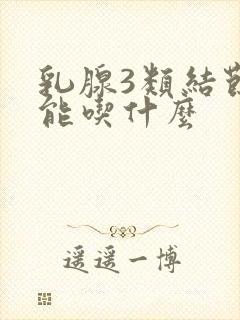 乳腺3類結節
能喫什麼
遥遥一博